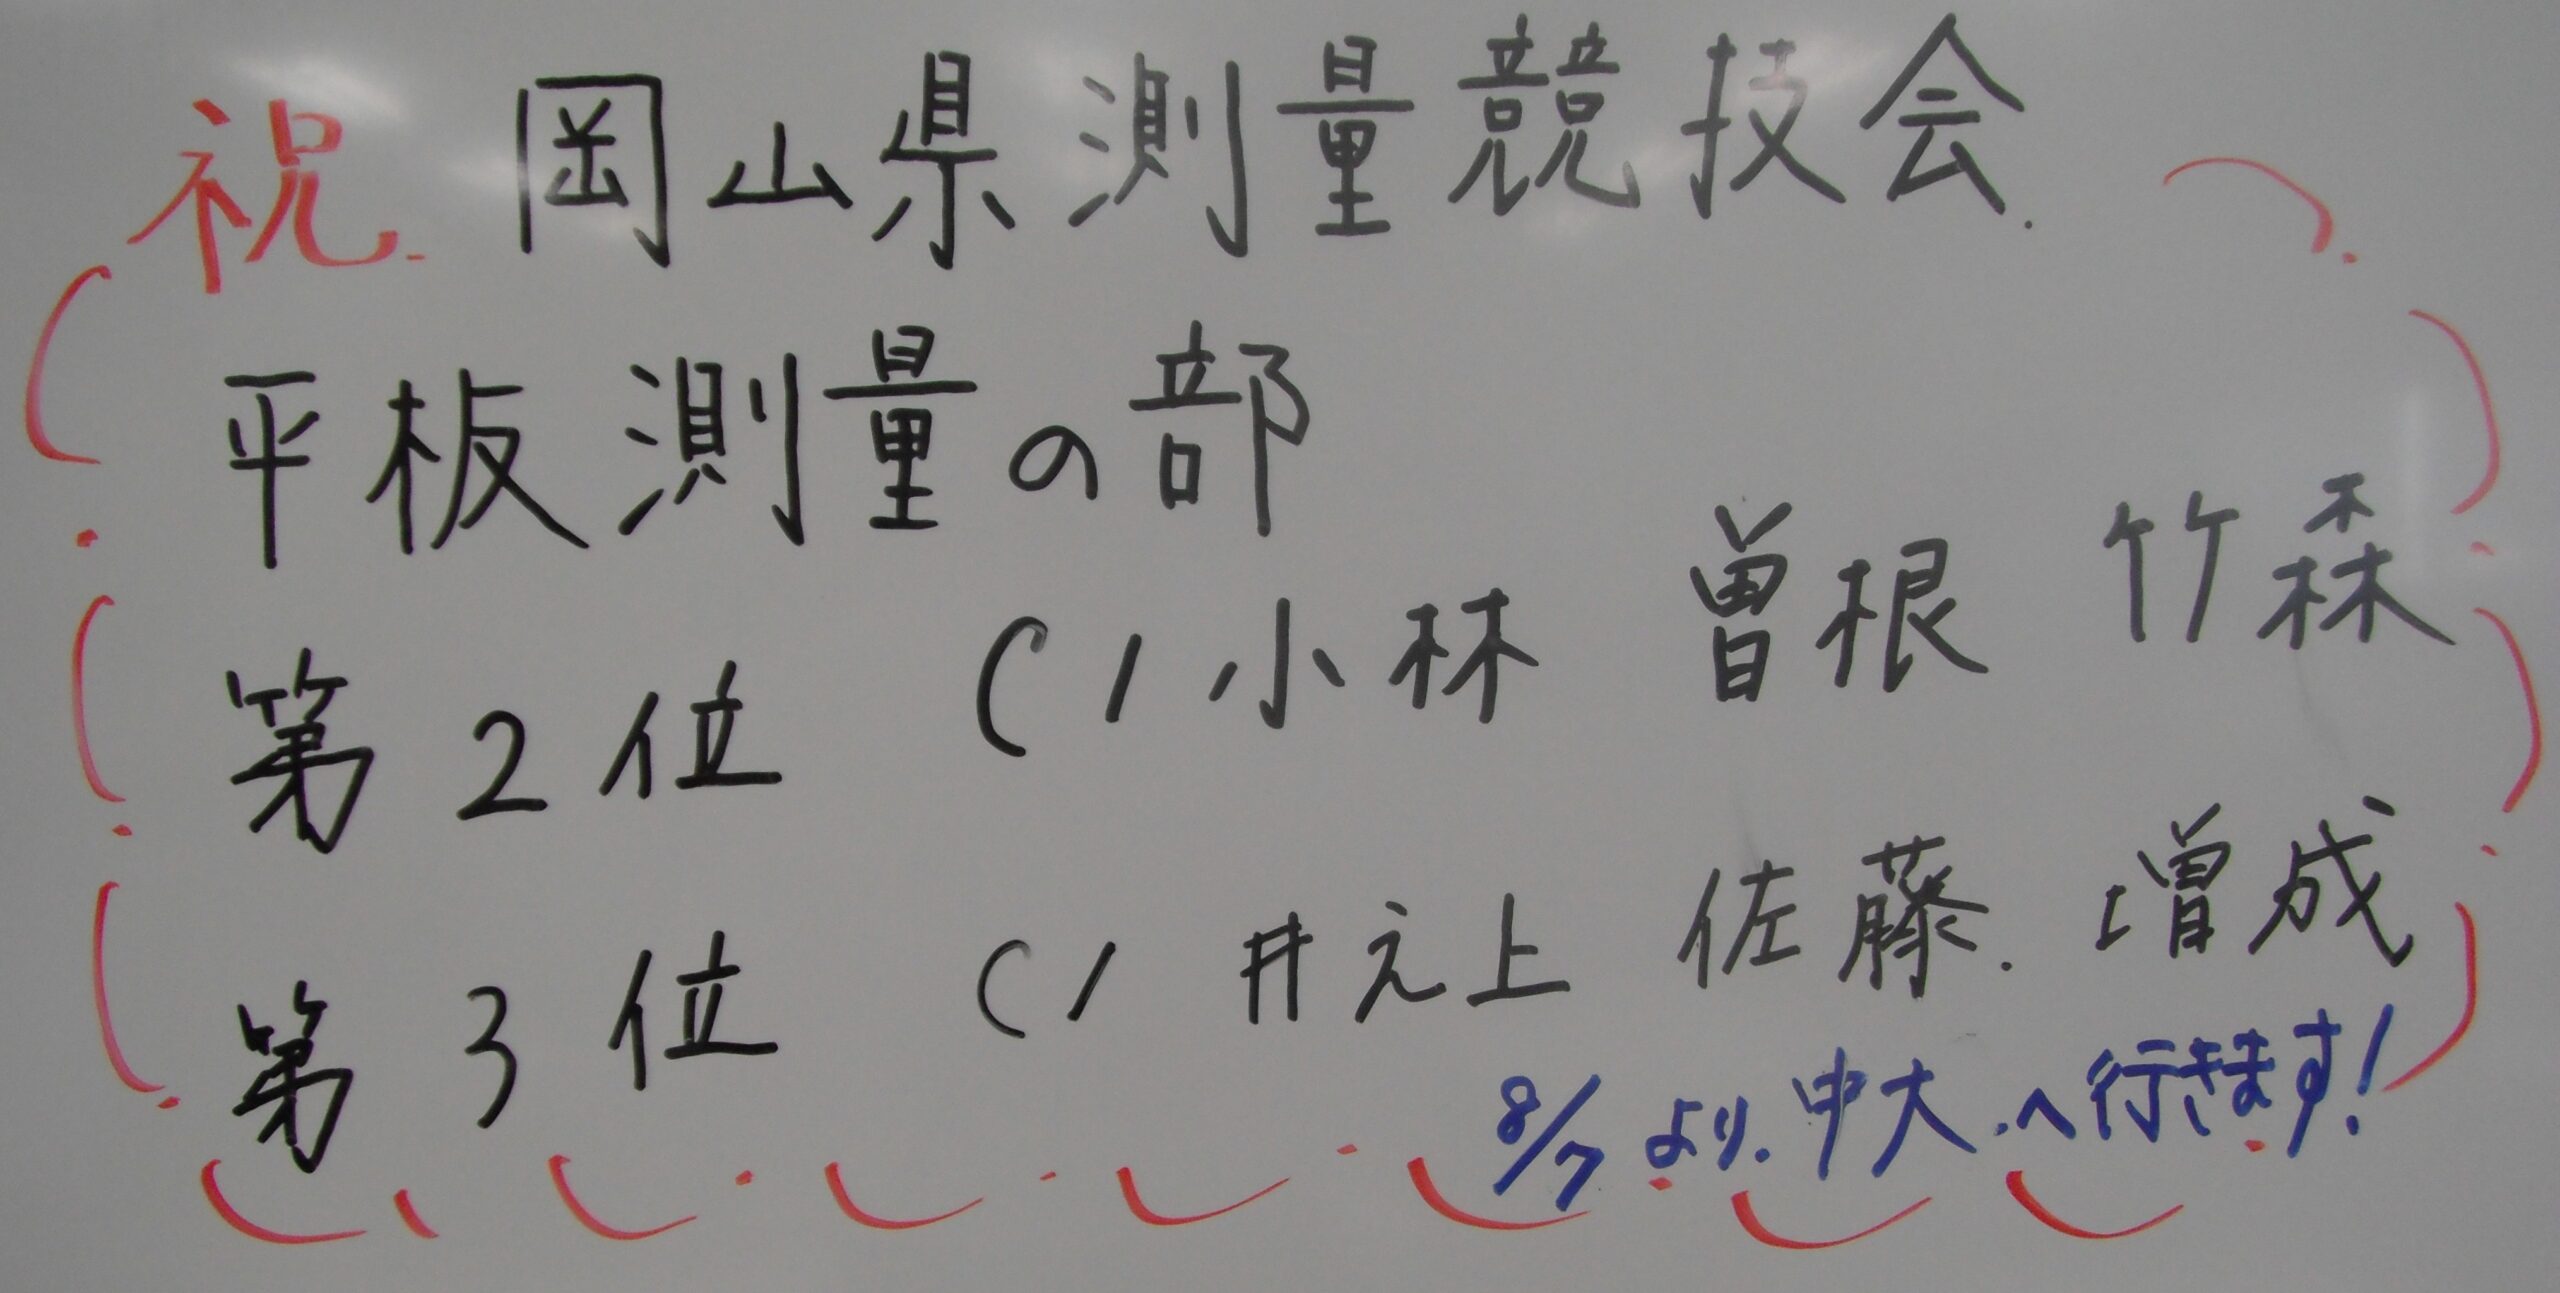 祝 岡山県測量競技会
平板測量の部
第2位 C1 小林 曽根 竹森
第3位 C1 井之上 佐藤 増成
8/7より中大へ行きます!